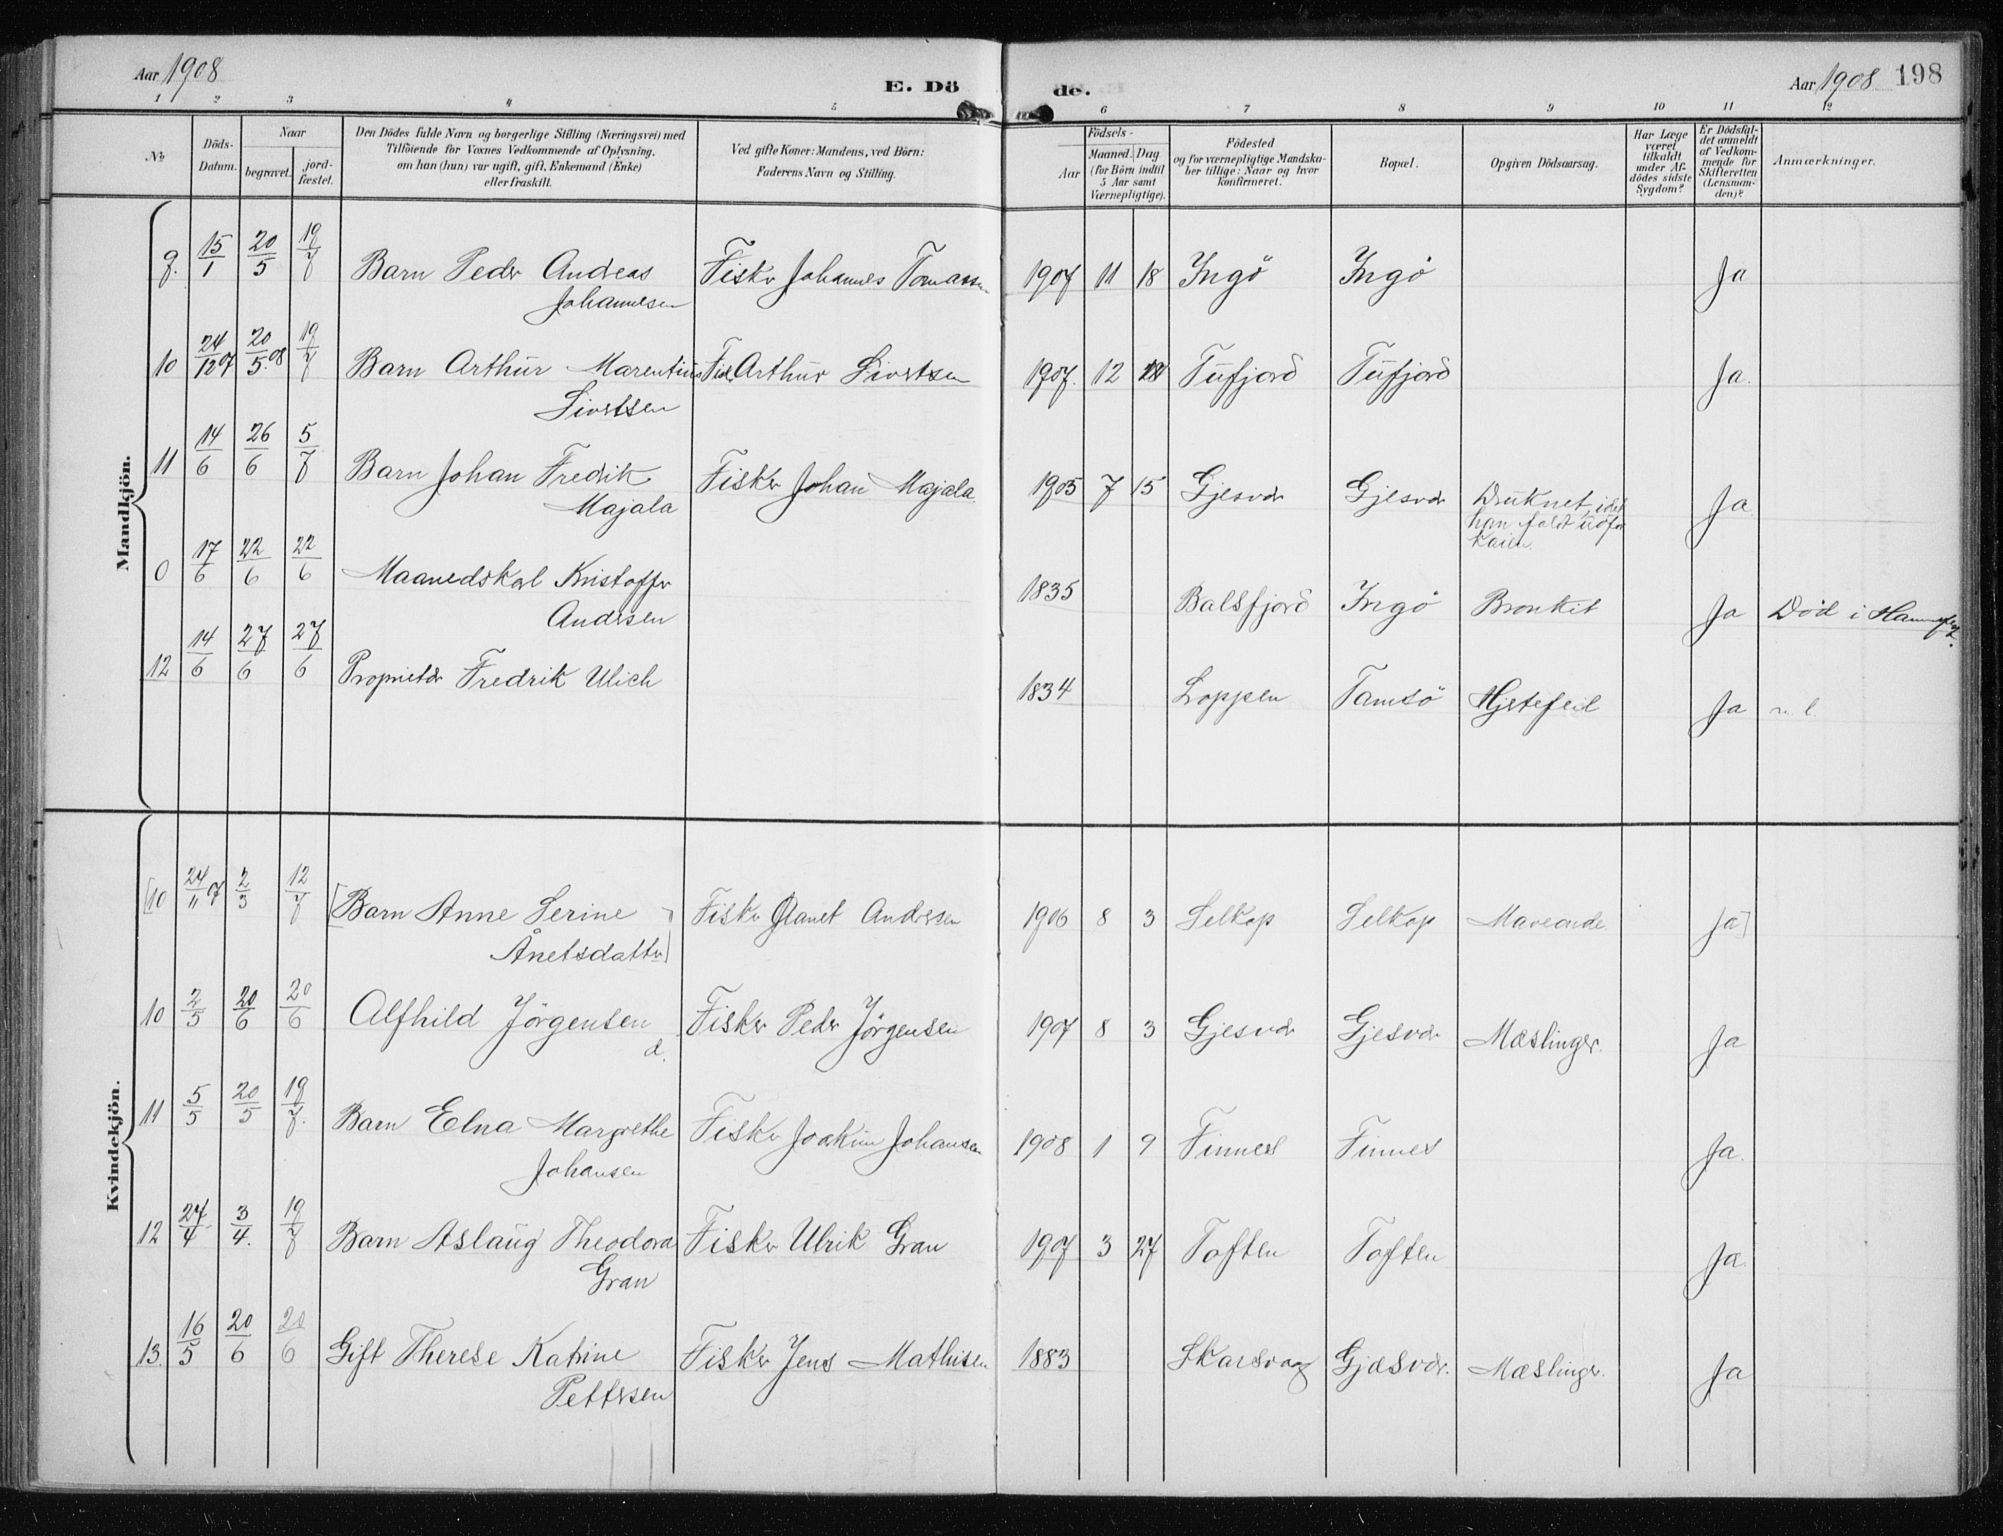 Aar 1908
E. Dö
de.
Aar 1908
198
1 2 3 4 5 6 7 8 9 10 11 12
No
Döds-Datum.
Naar
begravet.
jord-fæstet.
Den Dödes fulde Navn og borgerlige Stilling (Næringsvei) med
Tilföiende for Voxnes Vedkommende af Oplysning,
om han (hun) var ugift, gift, Enkemand (Enke)
eller fraskilt.
Ved gifte Koner: Mandens, ved Börn:
Faderens Navn og Stilling.
Födsels-
Aar
Maaned. Dag
(for Börn indtil
5 Aar samt
Værnepligtige).
Födested
og for værnepligtige Mandska-
ber tillige: Naar og hvor
konfirmeret.
Bopæl.
Opgiven Dödsaarsag.
Har Læge
været
tilkaldt
under Af-
dödes sidste
Sygdom?
Er Dödsfal-
det anmeldt
af Vedkom-
mende for
Skifteretten
(Lensman-
den)?
Anmærkninger.
Mandkjön.
9. 15/1 20/5 19/7 Barn Peder Andreas Fisker Johannes Tomassen 1907 11 18 Ingö Ingö Ja
Johannesen
10 24/12 07 20/5 08 19/7 Barn Arthur Marentius Fisk. Arthur Sivertsen 1907. 12 Tufjord Tufjord Ja.
Sivertsen
11 14/6 26/6 5/7 Barn Johan Fredrik Fisker Johan Majala 1905 7 15 Gjesvær Gjesvær Druknet, idet Ja
Majala han faldt udfor
Kaien.
0 17/6 22/6 22/6 Maanedskarl Kristoffer 1835 Balsfjord Ingö Bronkit Ja Död i Hammerfest.
Andersen
12 14/6 27/6 27/6 Proprietær Fredrik Ulich 1834 Loppen Tamsö Hjertefeil Ja
Kvindekjön.
[10 24/11 07 2/3 12/7 [Barn Anne Serine Fisker Anet Andersen 1906 8 3 Selkop Selkop Maveonde Ja]
Ånetsdatter]
10 2/5 20/6 20/6 Alfhild Jörgensen Fisker Peder Jörgensen 1907 8 3 Gjesvær Gjesvær Mæslinger. Ja
d.
11 5/5 20/5 19/7. Barn Elna Margrethe Fisker Joakim Johansen 1908 1 9 Finnes Finnes Ja.
Johansen
12 27/4 3/4. 19/7 Barn Aslaug Theodora Fisker Ulrik Gran 1907 3 27 Toften Toften Ja.
Gran
13. 16/5 20/6 20/6 Gift Therese Katrine Fisker Jens Mathisen 1883 Skarsvaag Gjæsvær. Mæslinger. Ja
Pettersen